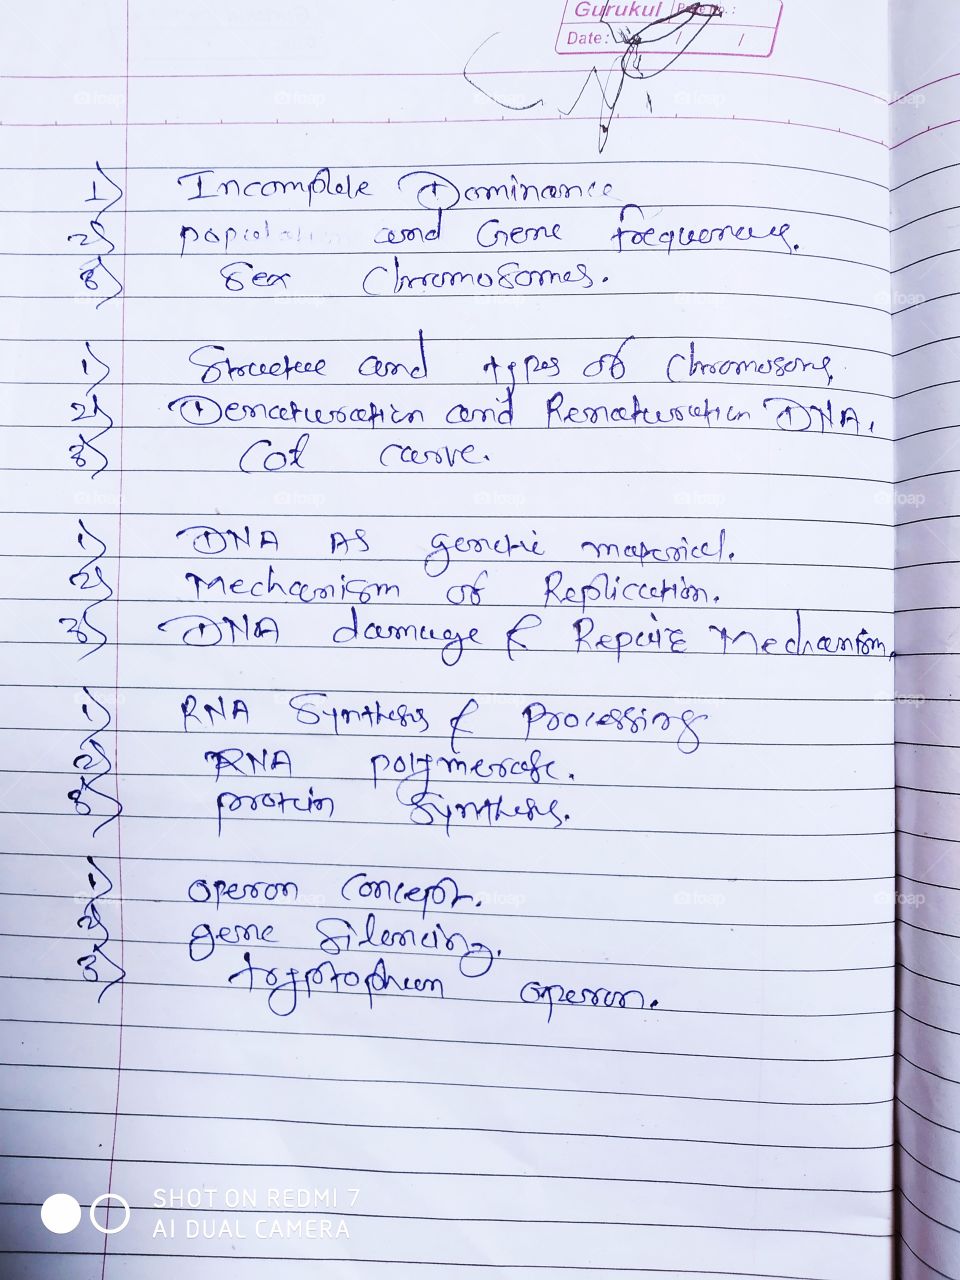 Gurukul Page No.:
Date: / /
1) Incomplete Dominance
2) population and Gene frequency.
3) Sex Chromosomes.
1) Structure and types of Chromosome.
2) Denaturation and Renaturation DNA.
3) Cot curve.
1) DNA AS genetic material.
2) Mechanism of Replication.
3) DNA damage & Repair Mechanism.
1) RNA Synthesis & Processing
2) RNA polymerase.
3) protein Synthesis.
1) operon Concept.
2) gene Silencing.
3) tryptophan operon.
SHOT ON REDMI 7
AI DUAL CAMERA
foap